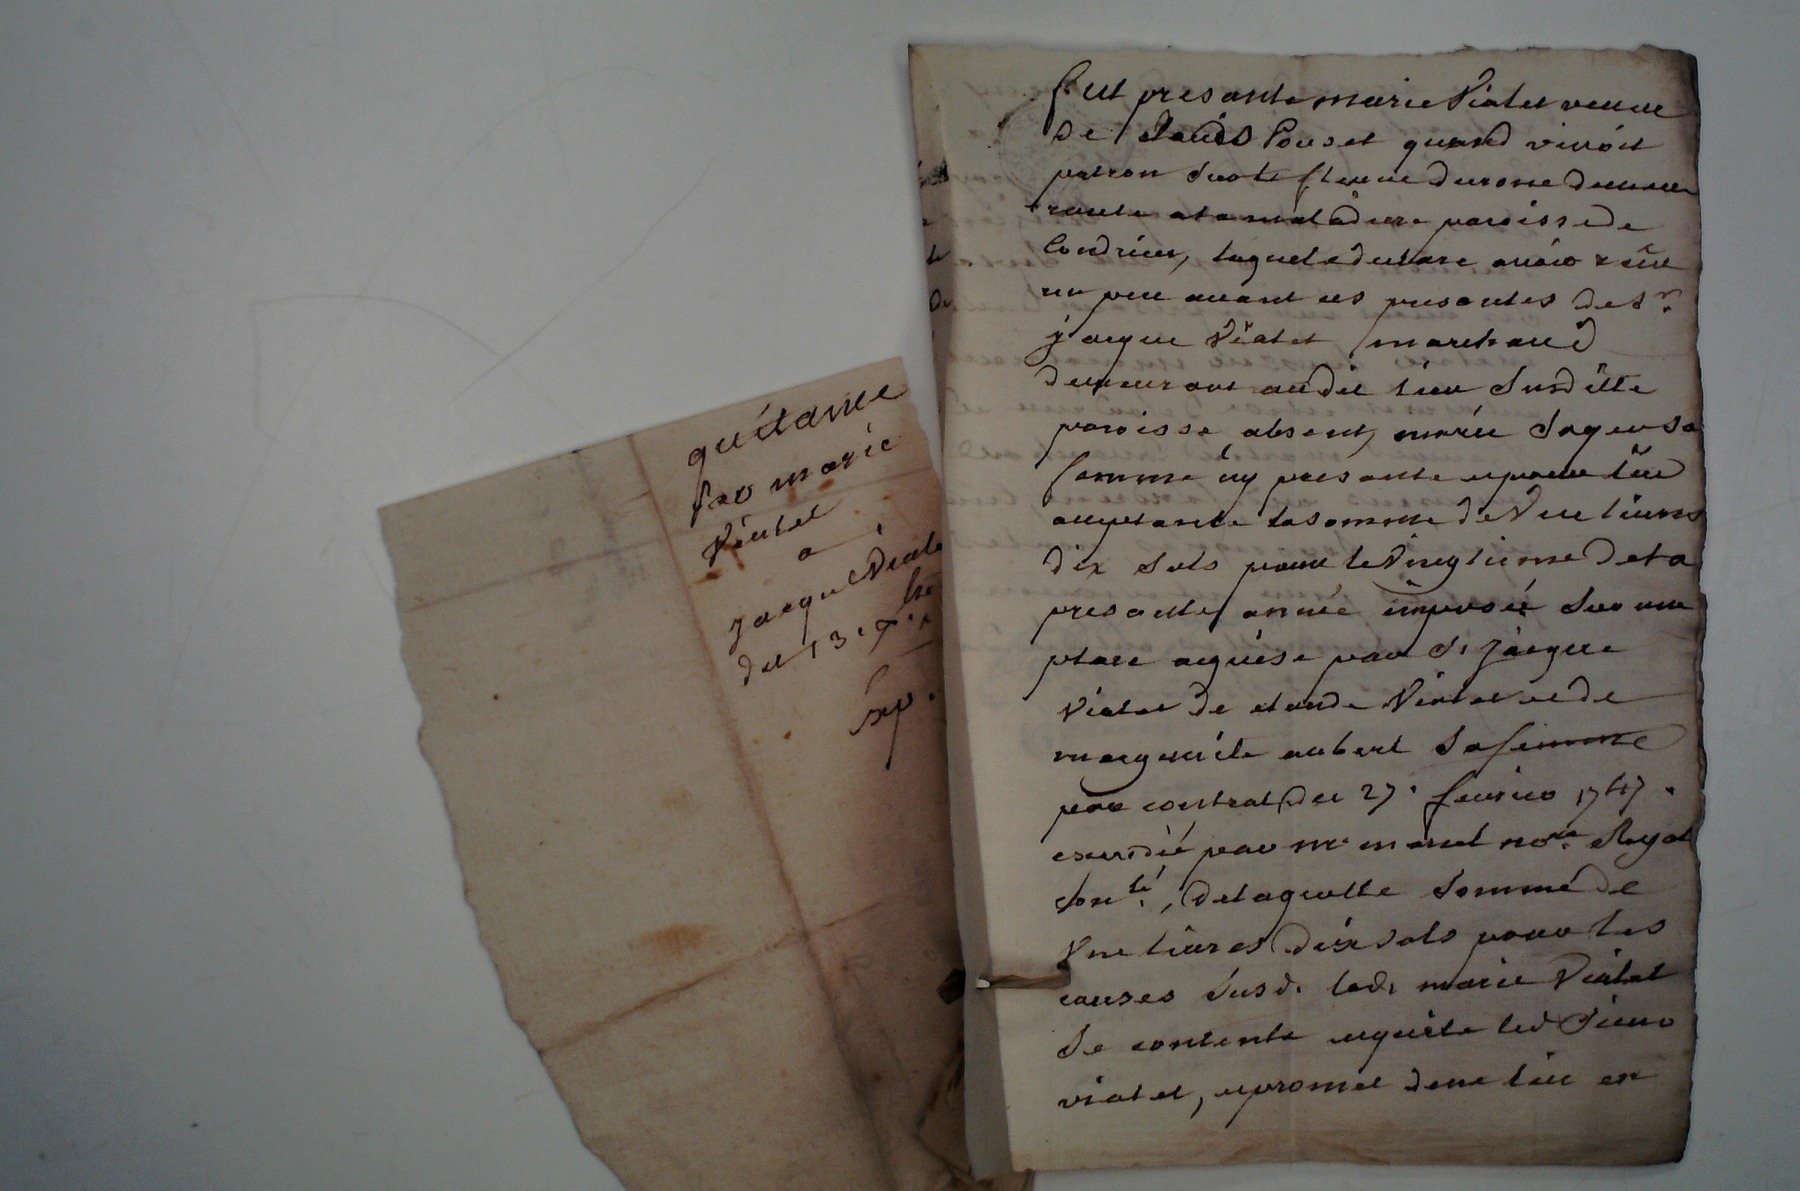 quitance
par marie
Viatel
a
jacque Viate
du 13e 9bre
exp.
fut presante marie Viatel veuve
de Pouset quand vivoit
patron sur le fleuve du rone demeu
rante a la maladiere paroisse de
Condrieu, laquele declare avoir reçu
un peu avant ces presantes de sr.
jacque Viatel marchand
demeurant audit lieu susditte
paroisse absent, marie
femme icy presante
acceptante la somme de Une livres
dix sols pour le Vingtieme de la
presante année imposée sur une
place aquise par sr jacque
Viatel de claude Viatel et de
marguerite aubert sa femme
par contrat du 27. fevrier 1747.
expedié par me nore. Royal
, de laquelle somme de
Une livres dix sols pour les
causes susd. lad. marie Viatel
se contente aquite led sieur
viatel, et promet